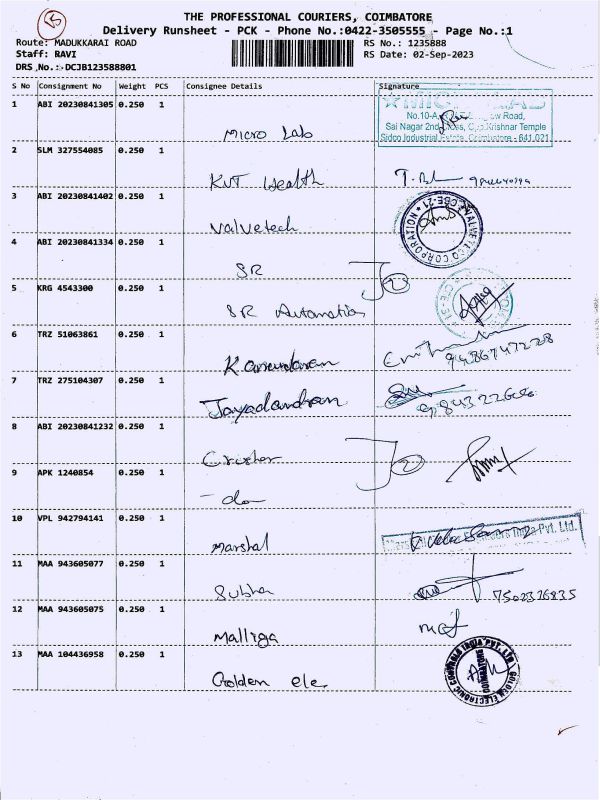 15
THE PROFESSIONAL COURIERS, COIMBATORE
Delivery Runsheet - PCK - Phone No.:0422-3505555 - Page No.:1
Route: MADUKKARAI ROAD
RS No.: 1235888
Staff: RAVI
RS Date: 02-Sep-2023
DRS No.:-DCJB123588801
S No Consignment No Weight PCS Consignee Details Signature
1 ABI 20230841305 0.250 1 Micro Lab
No.10-A, Road,
Sai Nagar 2nd Cross, Krishnar Temple
Sidco Industrial Estate, Coimbatore - 641 021
2 SLM 327554085 0.250 1 KVT Wealth
3 ABI 20230841402 0.250 1 Valvetech
4 ABI 20230841334 0.250 1 SR
5 KRG 4543300 0.250 1 SR Automation
6 TRZ 51063861 0.250 1 9486747228
7 TRZ 275104307 0.250 1
8 ABI 20230841232 0.250 1 Crusher
9 APK 1240854 0.250 1 - do
10 VPL 942794141 0.250 1 Marshal
Pvt. Ltd.
11 MAA 943605077 0.250 1 Subha 7502326835
12 MAA 943605075 0.250 1 Malliga
13 MAA 104436958 0.250 1 Golden ele
GOLDEN ELECTRONIC INDIA PVT. LTD.
COIMBATORE